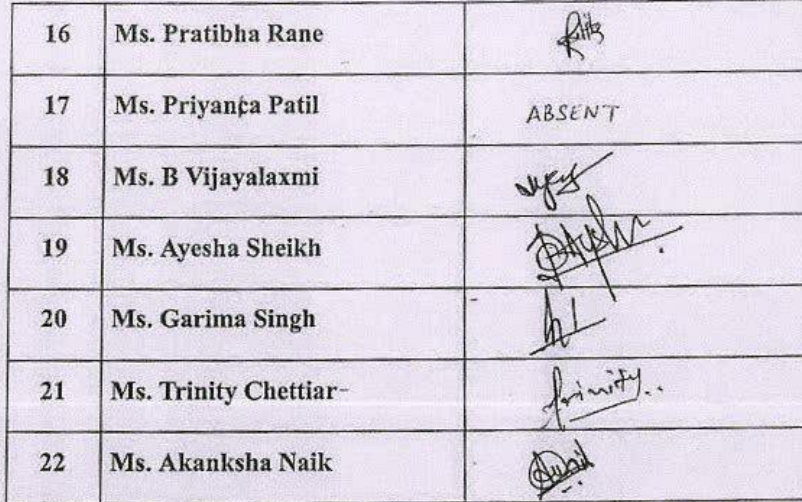 16 Ms. Pratibha Rane
17 Ms. Priyanca Patil ABSENT
18 Ms. B Vijayalaxmi
19 Ms. Ayesha Sheikh
20 Ms. Garima Singh
21 Ms. Trinity Chettiar- Trinity..
22 Ms. Akanksha Naik